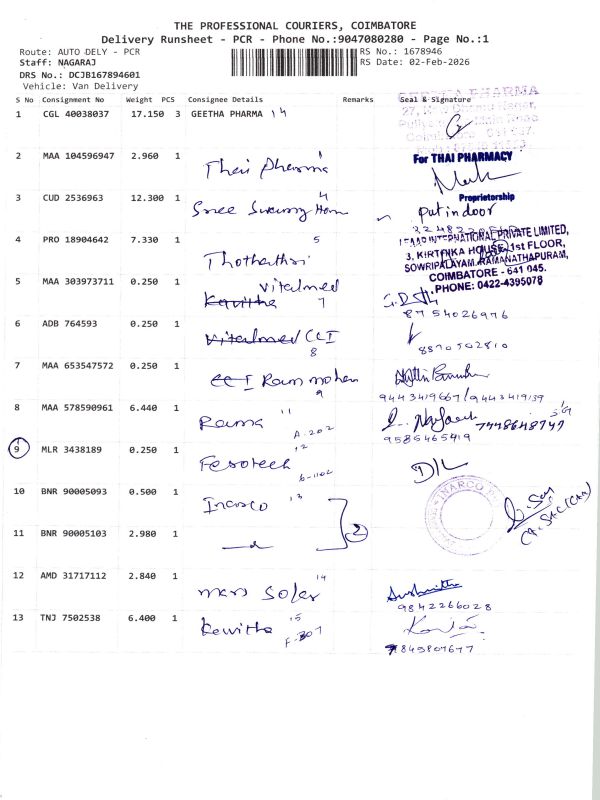 THE PROFESSIONAL COURIERS, COIMBATORE
Delivery Runsheet - PCR - Phone No.:9047080280 - Page No.:1
Route: AUTO DELY - PCR
RS No.: 1678946
Staff: NAGARAJ
RS Date: 02-Feb-2026
DRS No.: DCJB167894601
Vehicle: Van Delivery
S No Consignment No Weight PCS Consignee Details Remarks Seal & Signature
1 CGL 40038037 17.150 3 GEETHA PHARMA 14
GEETHA PHARMA
2 MAA 104596947 2.960 1 Thai Pharma
For THAI PHARMACY
Proprietorship
3 CUD 2536963 12.300 1 Sree Swamy Hom 4
Putindoor
4 PRO 18904642 7.330 1 Thothathri 5
INTERNATIONAL PRIVATE LIMITED,
3, KIRTHIKA HOUSE, 1st FLOOR,
SOWRIPALAYAM, RAMANATHAPURAM,
COIMBATORE - 641 045.
PHONE: 0422-4395078
5 MAA 303973711 0.250 1 Kavitha vitalmed 7
8754026976
6 ADB 764593 0.250 1 Vitalmed CCI 8
8870502810
7 MAA 653547572 0.250 1 CCI Ram mohan 9
9443419667/9443419139
8 MAA 578590961 6.440 1 Rama 11
A-202
9585465419 7448648747
9 MLR 3438189 0.250 1 Ferotech 12
D/L
10 BNR 90005093 0.500 1 Inarco 13
11 BNR 90005103 2.980 1
2
12 AMD 31717112 2.840 1 mars Solar 14
Sushmitha
9842266028
13 TNJ 7502538 6.400 1 Kavitha 15
F-307
9845807677